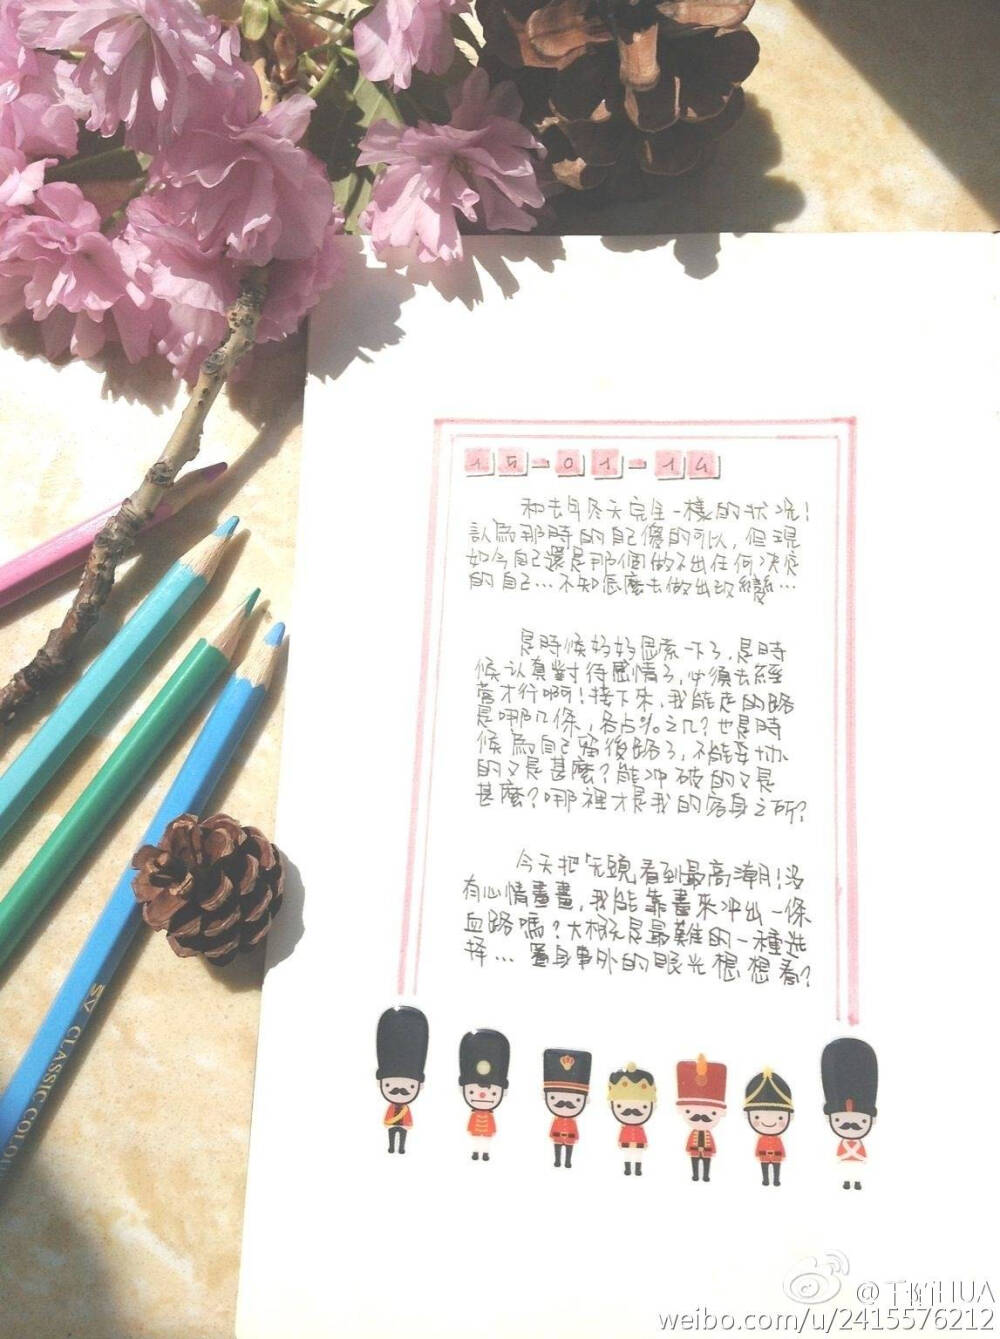 15-01-14
和去年冬天完全一樣的狀況！
認為那時的自己傻的可以，但現
如今自己還是那個做不出任何决定
的自己…不知怎麼去做出改變…
是時候好好思索一下了，是時
候认真對待感情了，必須去經
營才行啊！接下來，我能走的路
是哪几條，各占%之几？也是時
候為自己留後路了，不能妥协
的又是甚麼？能冲破的又是
甚麼？哪裡才是我的容身之所？
今天把 看到最高潮！沒
有心情畫畫，我能靠畫來冲出一條
血路嗎？大概是最難的一種选
择… 置身事外的眼光想想看？
SV CLASSIC COLOU
HUA
weibo.com/u/2415576212